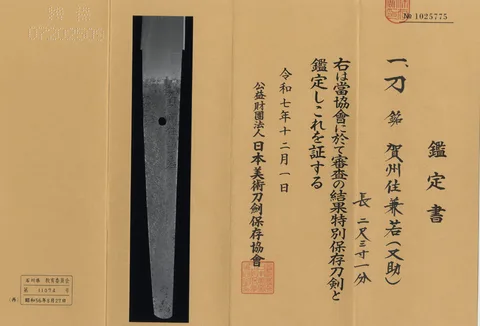 № 1025775
鑑定書
一、刀 銘 賀州住兼若(又助)
長 二尺三寸一分
右は當協會に於て審査の結果特別保存刀剣と
鑑定しこれを証する
令和七年十二月一日
公益財團法人 日本美術刀劍保存協會
教育委員会
昭和56年8月27日